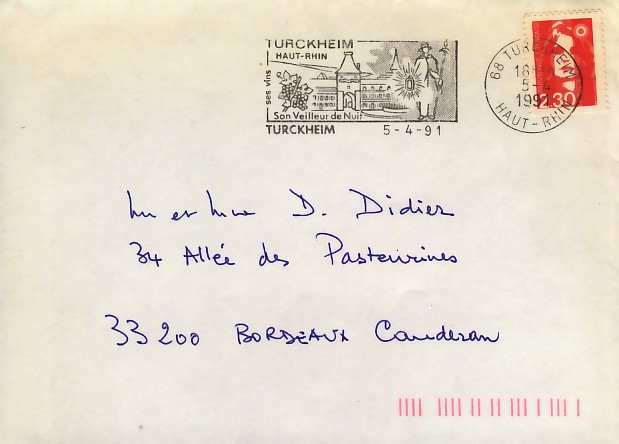 TURCKHEIM
HAUT-RHIN
ses vins
Son Veilleur de Nuit
TURCKHEIM 5-4-91
68 TURCKHEIM
18
5-4
1991
HAUT-RHIN
2.30
Mr et Mme D. Didier
34 Allée des Pasteurines
33200 BORDEAUX Cauderan